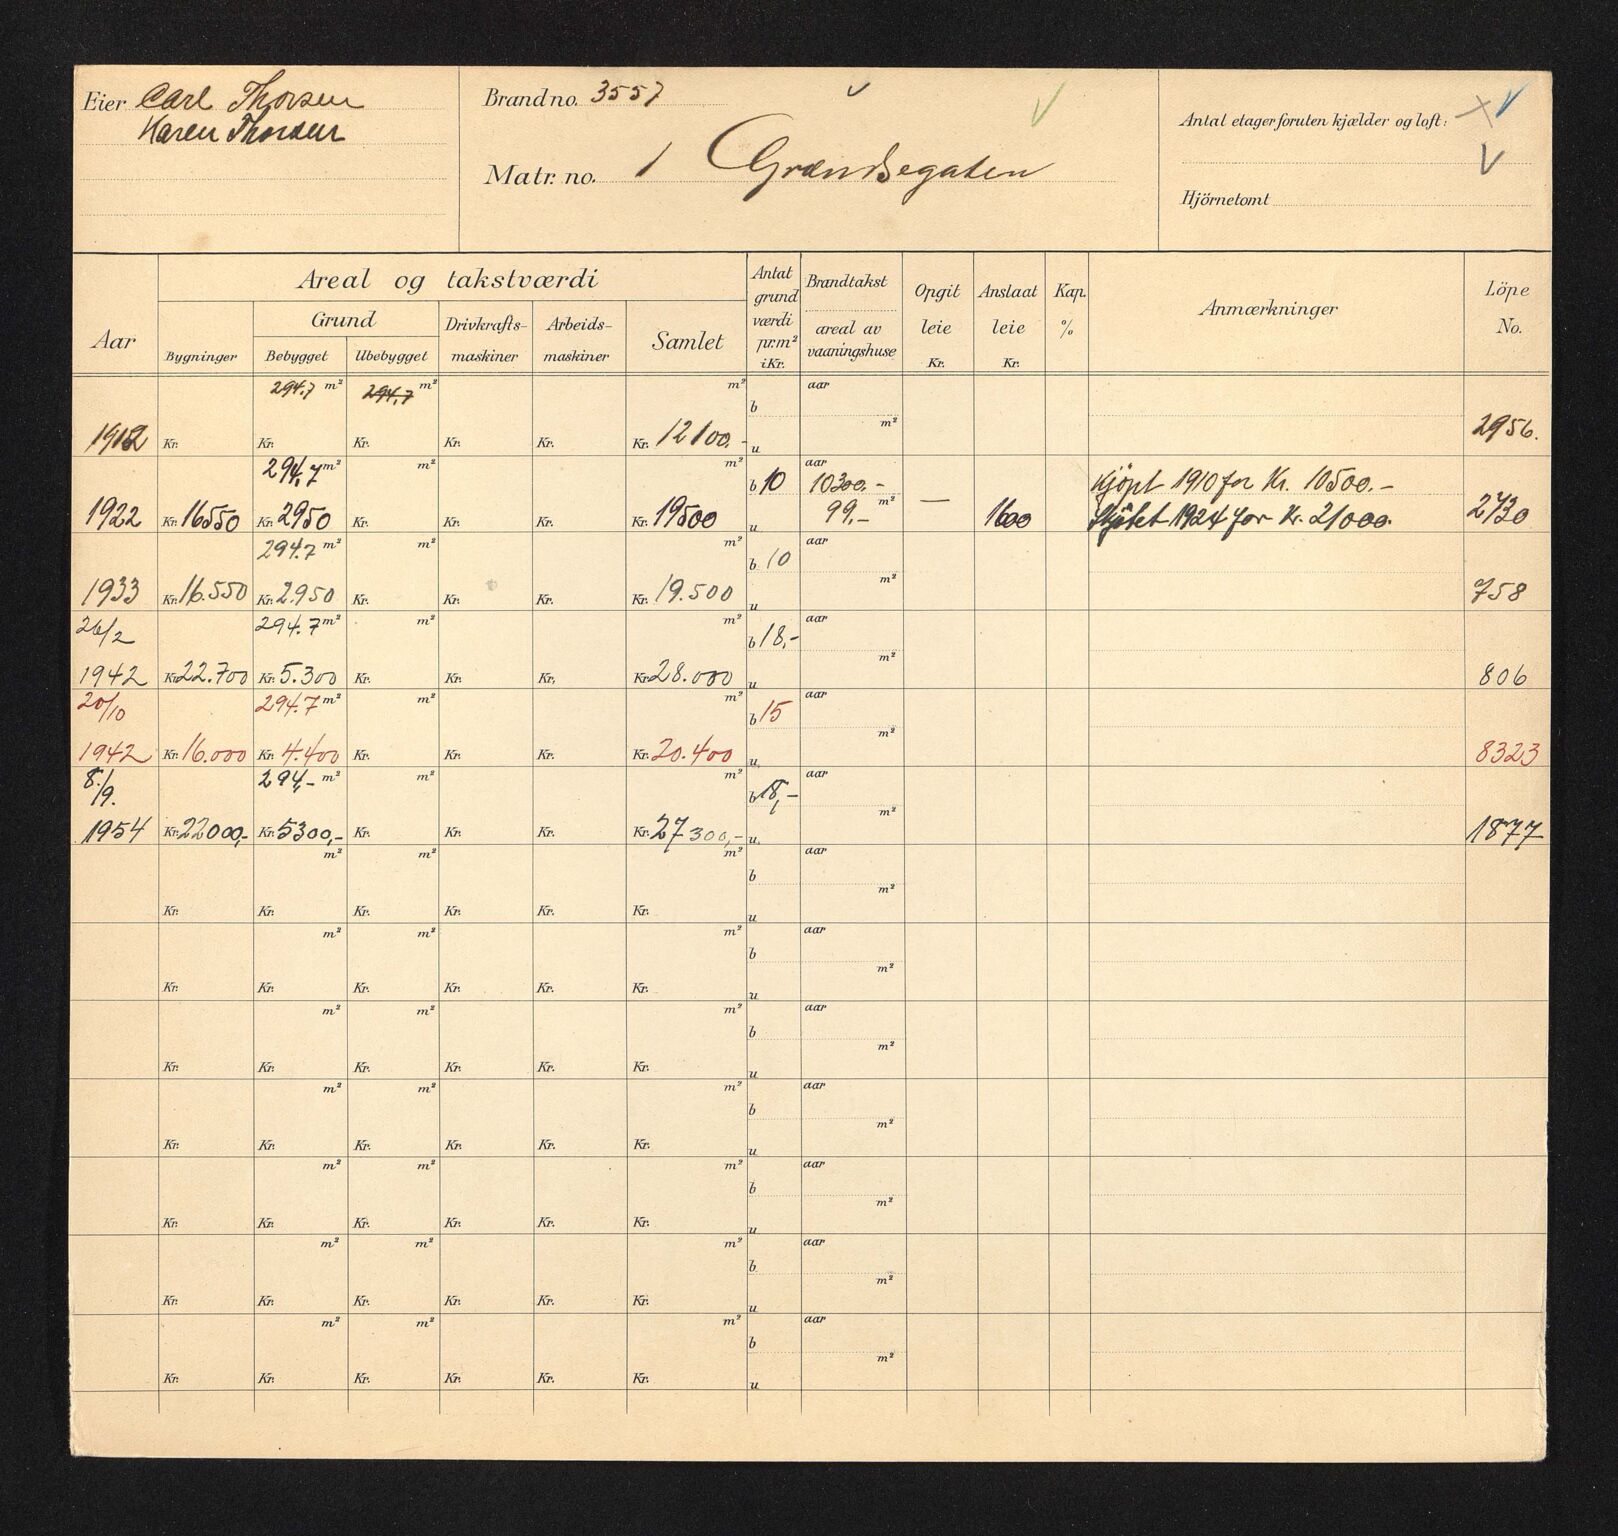 Eier Carl Thorsen
Karen Thorsen
Brand no. 3557
Matr. no. 1 Grændsegaten
Antal etager foruten kjælder og loft:
Hjörnetomt
Aar
Areal og takstværdi
Bygninger
Grund
Bebygget
Ubebygget
Drivkrafts-
maskiner
Arbeids-
maskiner
Samlet
Antat
grund
værdi
pr. m²
i Kr.
Brandtakst
areal av
vaaningshuse
Opgit
leie
Kr.
Anslaat
leie
Kr.
Kap.
%
Anmærkninger
Löpe
No.
294.7 m² 294,7 m² m² b aar m²
1912 Kr. Kr. Kr. Kr. Kr. Kr. 12100.- u 2956.
294,7 m² m² m² b 10 aar 10300.- Kjöpt 1910 for Kr. 10500.-
1922 Kr. 16550 Kr. 2950 Kr. Kr. Kr. Kr. 19500 u 99,- m² — 1600 Skjötet 1924 for Kr. 21000. 2730
294.7 m² m² m² b 10 aar m²
1933 Kr. 16.550 Kr. 2.950 Kr. Kr. Kr. Kr. 19.500 u 758
26/2 294.7 m² m² m² b 18,- aar m²
1942 Kr. 22.700 Kr. 5.300 Kr. Kr. Kr. Kr. 28.000 u 806
20/10 294.7 m² m² m² b 15 aar m²
1942 Kr. 16.000 Kr. 4.400 Kr. Kr. Kr. Kr. 20.400 u 8323
8./9. 294,- m² m² m² b 18,- aar m²
1954 Kr. 22000,- Kr. 5300,- Kr. Kr. Kr. Kr. 27300,- u 1877
m² m² m² b aar m²
Kr. Kr. Kr. Kr. Kr. Kr. u
m² m² m² b aar m²
Kr. Kr. Kr. Kr. Kr. Kr. u
m² m² m² b aar m²
Kr. Kr. Kr. Kr. Kr. Kr. u
m² m² m² b aar m²
Kr. Kr. Kr. Kr. Kr. Kr. u
m² m² m² b aar m²
Kr. Kr. Kr. Kr. Kr. Kr. u
m² m² m² b aar m²
Kr. Kr. Kr. Kr. Kr. Kr. u
m² m² m² b aar m²
Kr. Kr. Kr. Kr. Kr. Kr. u